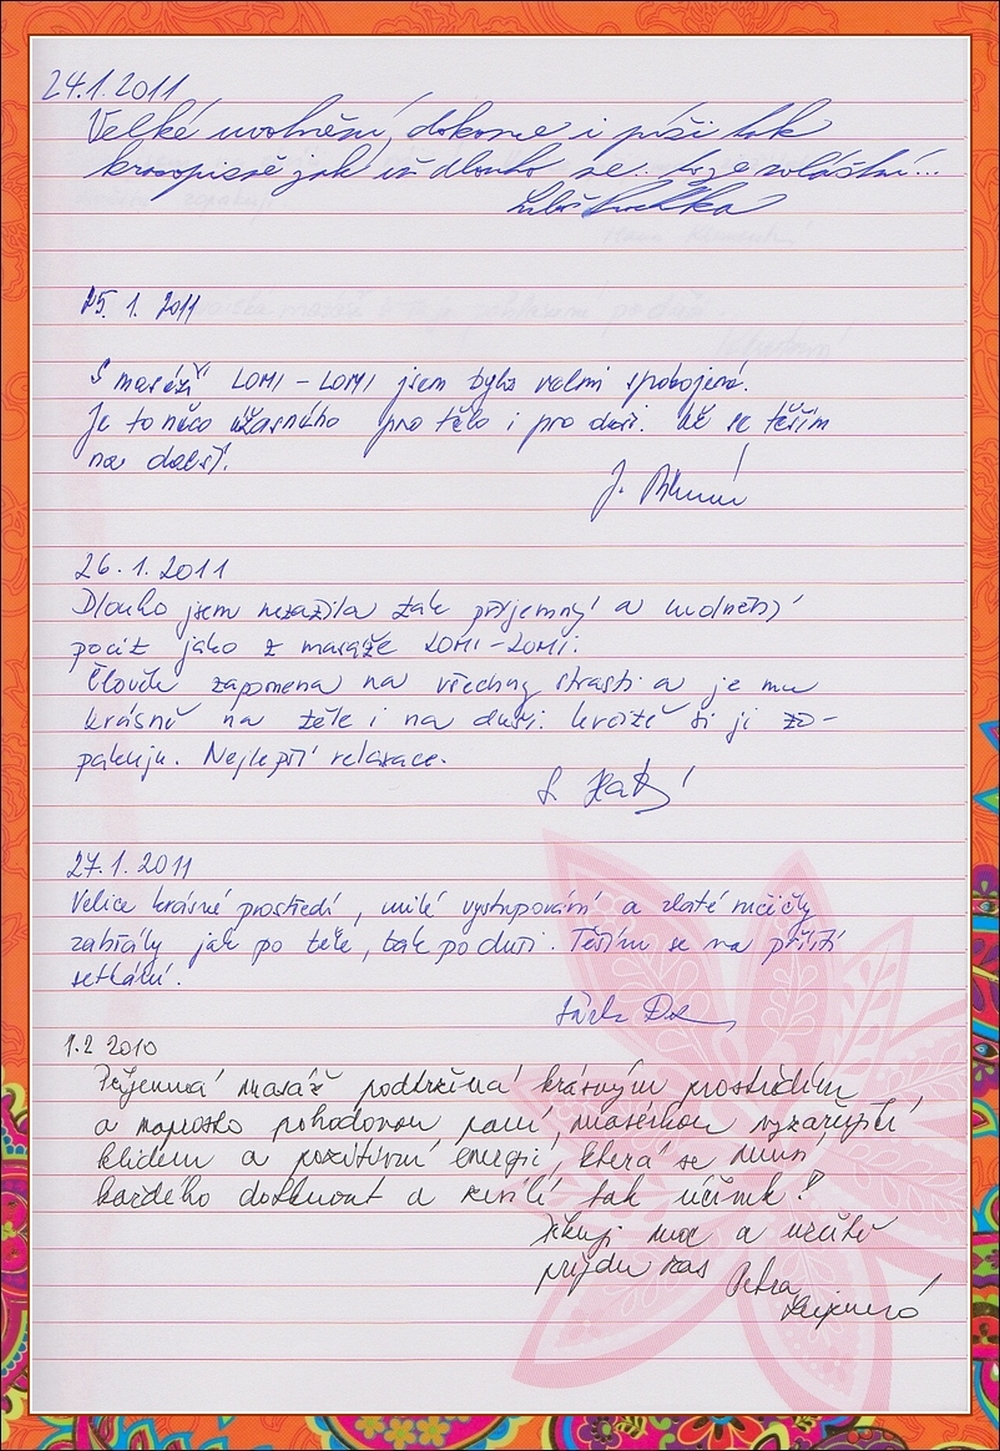 24.1.2011
Velké uvolnění, dokonce i píši tak
krasopisně jak už dlouho ne.. to je zvláštní...
Luboš
25. 1. 2011
S masáží LOMI - LOMI jsem byla velmi spokojená.
Je to něco úžasného pro tělo i pro duši. Už se těším
na další.
J.
26.1.2011
Dlouho jsem nezažila tak příjemný a uvolněný
pocit jako z masáže LOMI-LOMI.
Člověk zapomena na všechny strasti a je mu
krásně na těle i na duši. Určitě si ji zo-
pakuju. Nejlepší relaxace.
27.1.2011
Velice krásné prostředí, milé vystupování a zlaté ručičky
zabraly jak po těle, tak po duši. Těším se na příští
setkání.
1.2 2010
Příjemná masáž podtržená krásným prostředím
a naprosto pohodovou paní masérkou vyzařující
klidem a pozitivní energií, která se musí
každého dotknout a zesílí tak účinek!
Děkuji moc a určitě
přijdu zas Petra